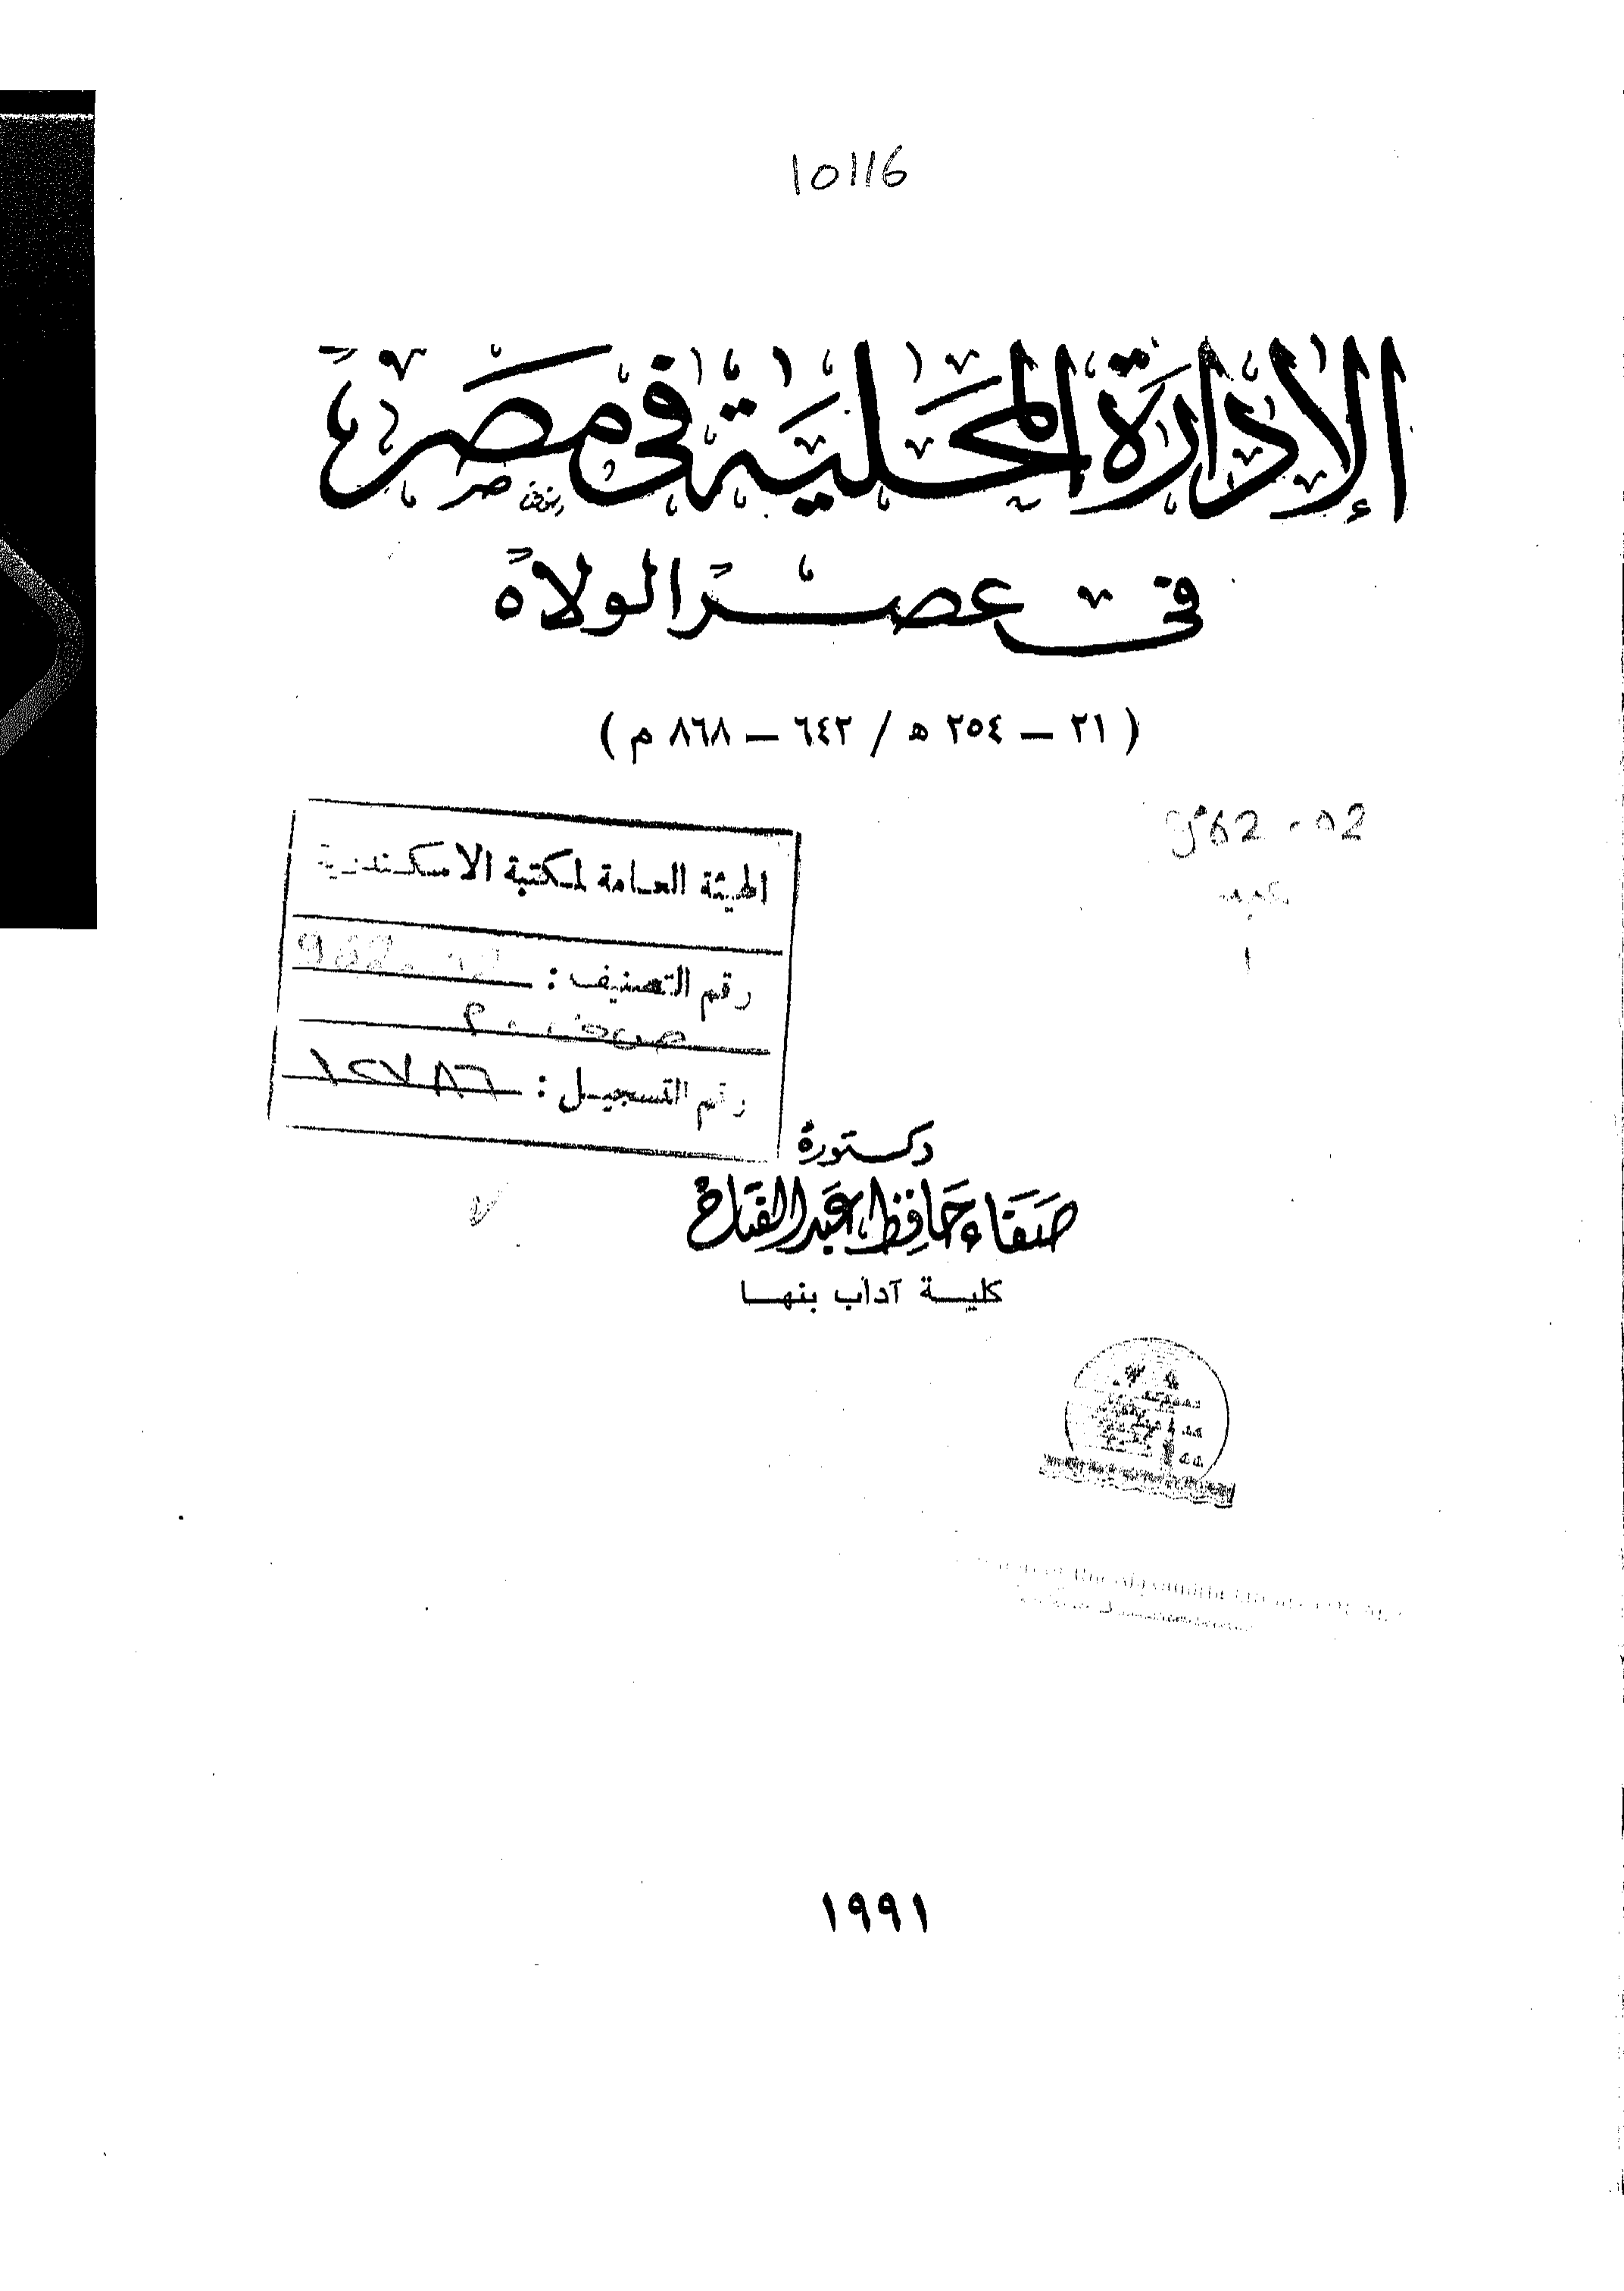 10116
الإدارة المحلية في مصر
فى عصر الولاه
( ٢١ – ٢٥٤ هـ / ٦٤٢ – ٨٦٨ م )
962.02
١
الهيئة العامة لمكتبة الاسكندرية
رقم التصنيف : 962.02
رقم التسجيل : ١٢٧٨٦
دكتورة
صفاء حافظ عبد الفتاح
كلية آداب بنها
١٩٩١